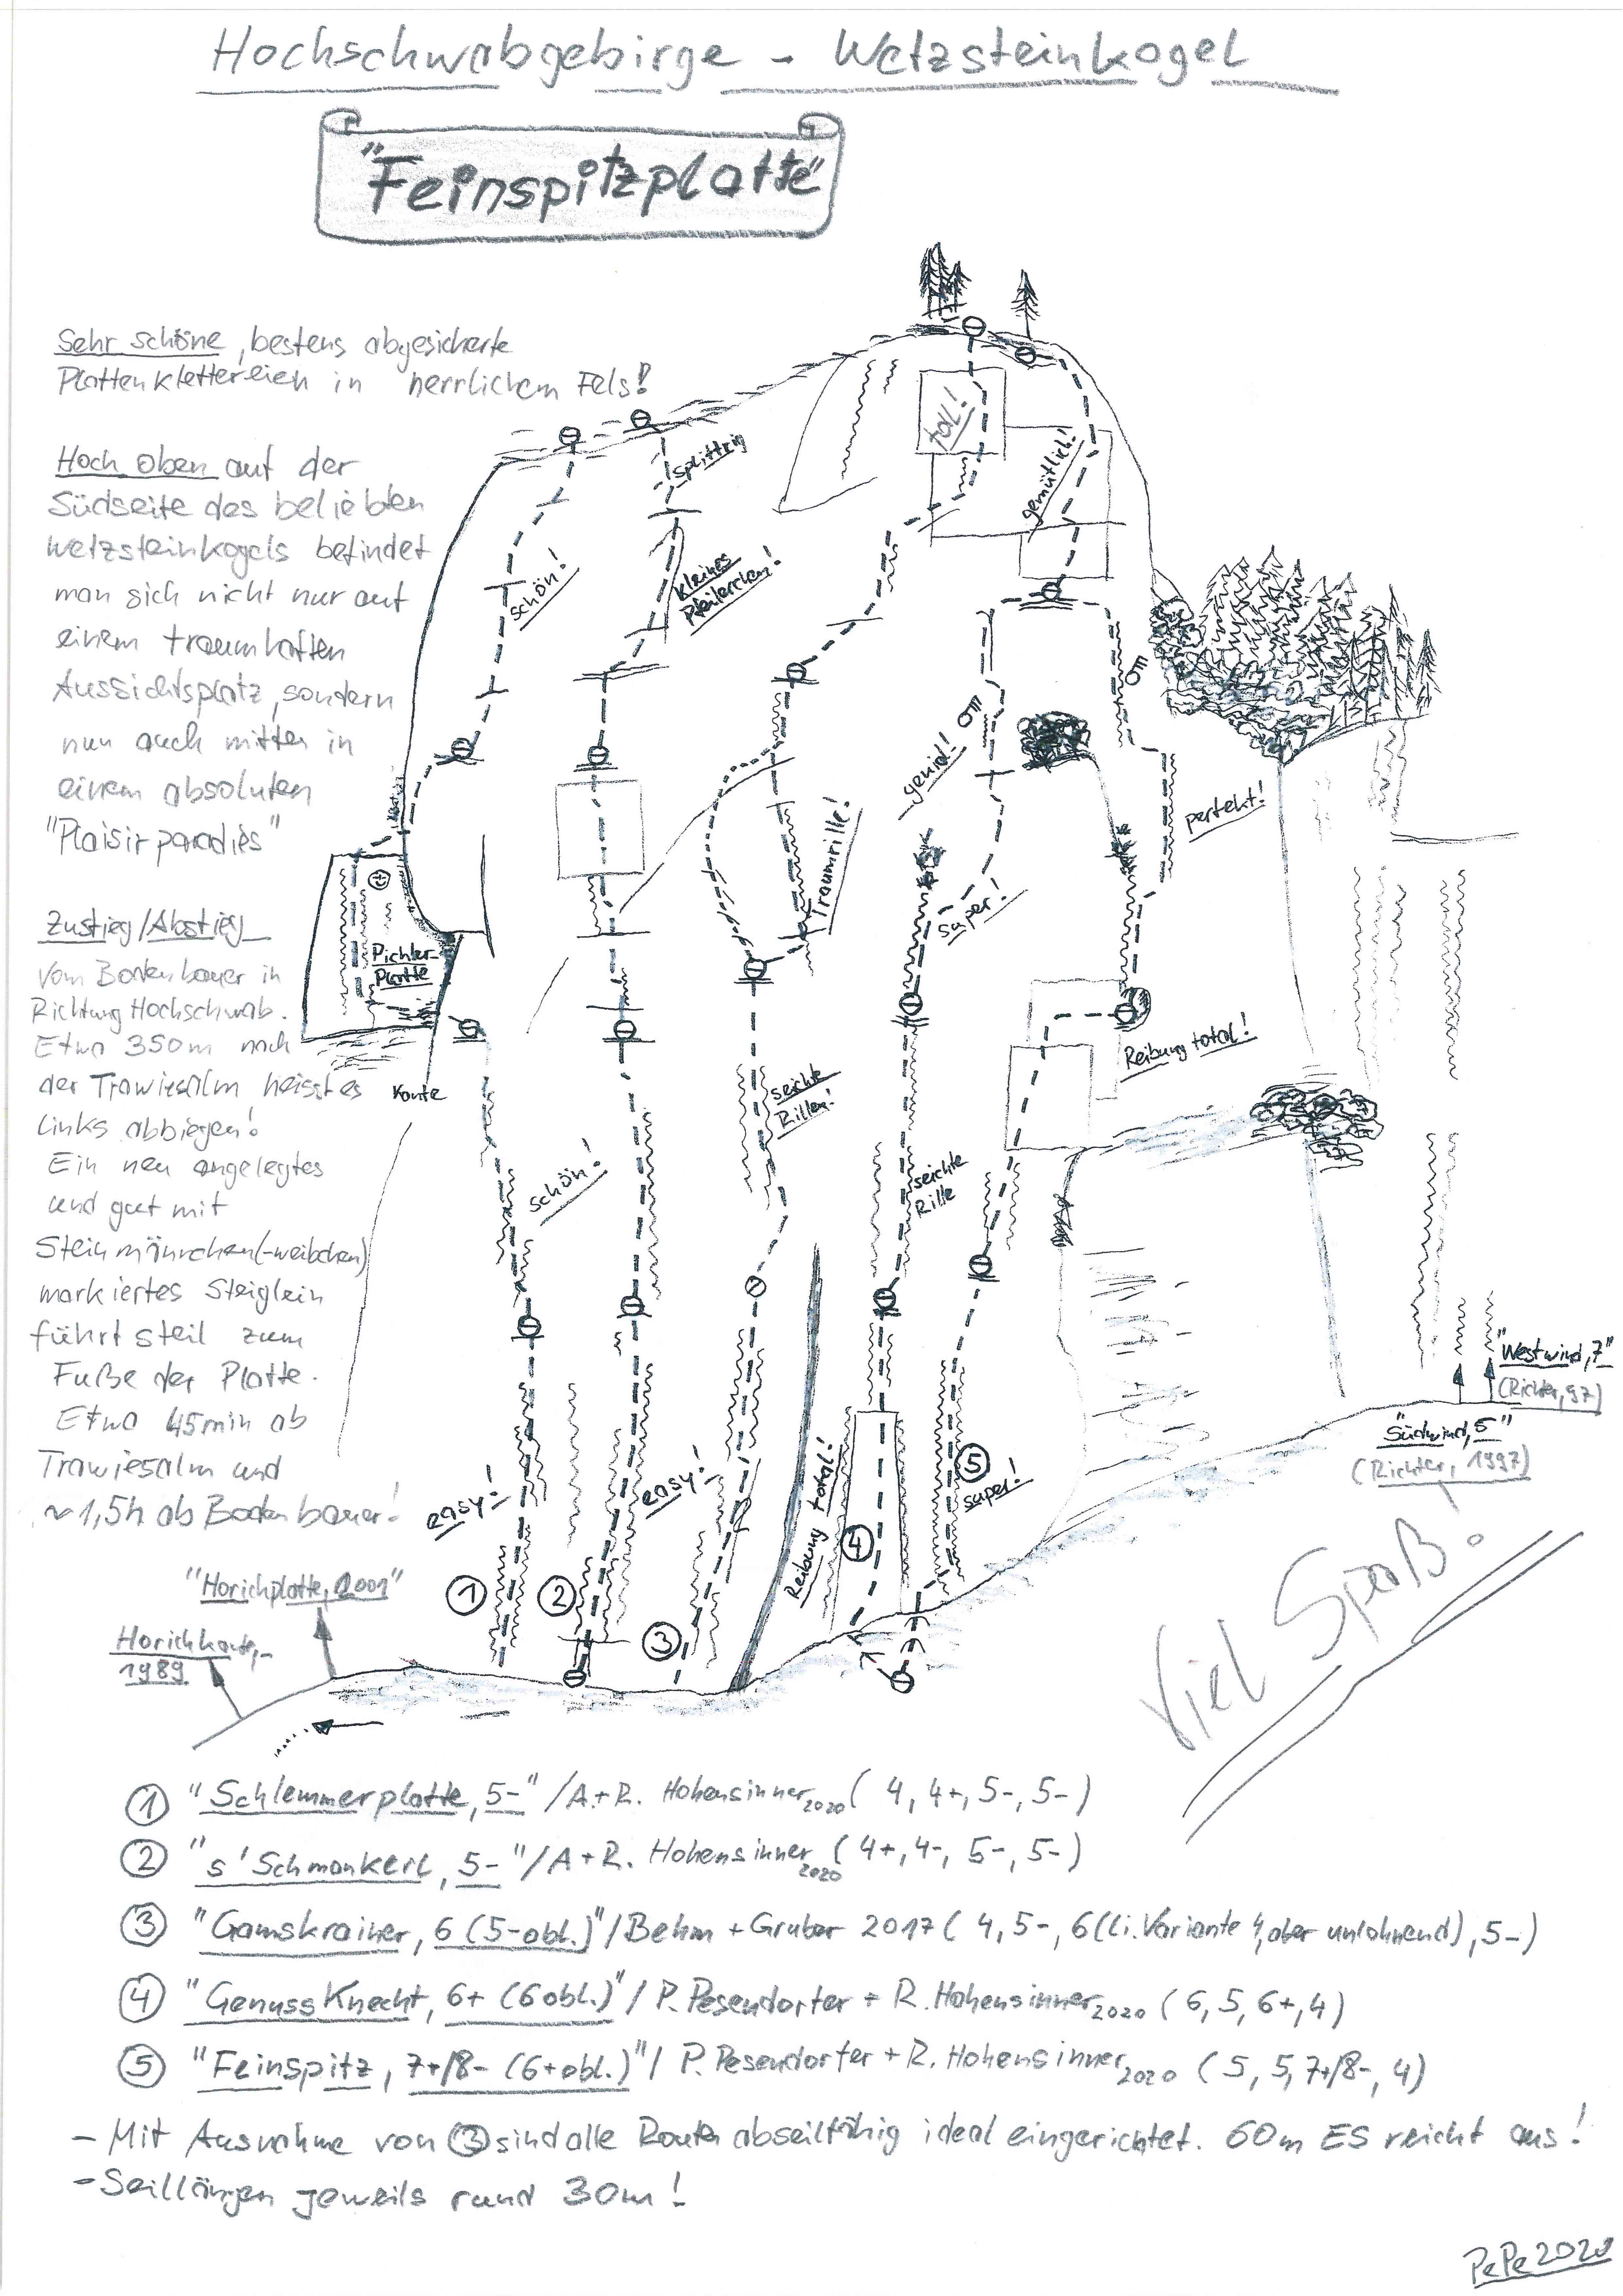 Hochschwabgebirge - Wetzsteinkogel
"Feinspitzplatte"
Sehr schöne, bestens abgesicherte
Plattenklettereien in herrlichem Fels!
Hoch oben auf der
Südseite des beliebten
Wetzsteinkogels befindet
man sich nicht nur auf
einem traumhaften
Aussichtsplatz, sondern
nun auch mitten in
einem absoluten
"Plaisirparadies"
Zustieg/Abstieg
Vom Bodenbauer in
Richtung Hochschwab.
Etwa 350m nach
der Trawiesalm heisst es
links abbiegen!
Ein neu angelegtes
und gut mit
Steinmännchen(-weibchen)
markiertes Steiglein
führt steil zum
Fuße der Platte.
Etwa 45min ab
Trawiesalm und
~1,5h ab Bodenbauer!
toll!
gemütlich!
splittrig
schön!
kleines
Pfeilerchen!
genial!
perfekt!
Traumrille!
super!
Pichler-
Platte
Kante
Reibung total!
seichte
Rillen!
schön!
seichte
Rille
"Westwind, 7"
(Richter, 97)
"Südwind, 5"
(Richter, 1997)
easy!
easy!
Reibung total!
super!
1
2
3
4
5
"Horichplatte, 2001"
Horichkante,-
1989
Viel Spaß!
1 "Schlemmerplatte, 5-" /A.+R. Hohensinner 2020 ( 4, 4+, 5-, 5-)
2 "s'Schmankerl, 5-"/A+R. Hohensinner 2020 ( 4+, 4-, 5-, 5-)
3 "Gamskrainer, 6 (5-obl.)"/Behm + Gruber 2017 ( 4, 5-, 6(li. Variante 4, aber unlohnend), 5-)
4 "GenussKnecht, 6+ (6 obl.)"/ P. Pesendorfer + R. Hohensinner 2020 ( 6, 5, 6+, 4)
5 "Feinspitz, 7+/8- (6+obl.)"/ P. Pesendorfer + R. Hohensinner 2020 ( 5, 5, 7+/8-, 4)
- Mit Ausnahme von 3 sind alle Routen abseilfähig ideal eingerichtet. 60m ES reicht aus!
- Seillängen jeweils rund 30m!
PePe 2020